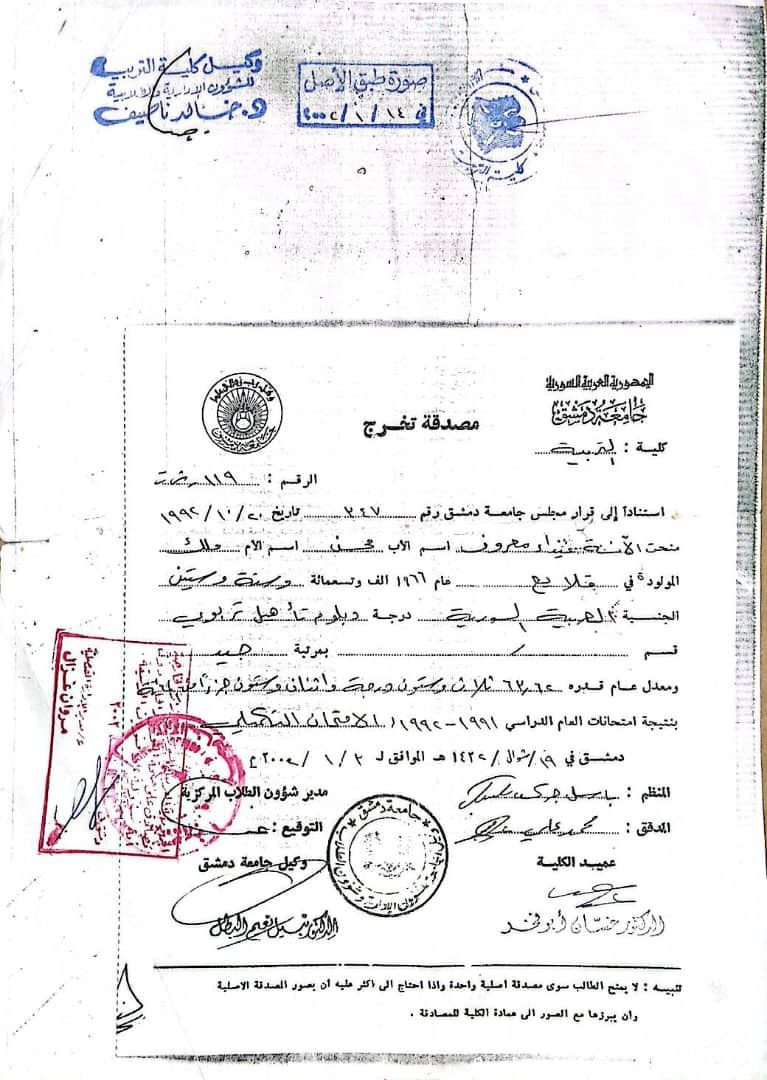 وكيل كلية التربية
للشؤون الإدارية والطلابية
د. خالد ناصيف
صورة طبق الأصل
في ١٤ / ١ / ٢٠٠٢
كلية التربية
الجمهورية العربية السورية
جامعة دمشق
كلية : التربية
مصدقة تخرج
الرقم : ١١٩
استناداً إلى قرار مجلس جامعة دمشق رقم ٣٤٧ تاريخ ٢٠ / ١٠ / ١٩٩٢
منحت الآنسة معروف اسم الأب محسن اسم الأم ملك
المولودة في قلايع عام ١٩٦٦ الف وتسعمائة وستة وستين
الجنسية العربية السورية درجة دبلوم تأهيل تربوي
قسم / بمرتبة جيد
ومعدل عام قدره ٦٣,٦٢ ثلاث وستون درجة واثنان وستون جزءاً من المئة
بنتيجة امتحانات العام الدراسي ١٩٩١ - ١٩٩٢ ( الامتحان التكميلي
دمشق في ١٩ / شوال / ١٤٢٢ هـ الموافق لـ ٣ / ١ / ٢٠٠٢ م
المنظم : باسل
مدير شؤون الطلاب المركزية
المدقق : محمد علي
التوقيع :
عميد الكلية
وكيل جامعة دمشق
الدكتور غسان أبو فخر
الدكتور نبيل نعيم البطل
جامعة دمشق
مروان غزال
تنبيه : لا يمنح الطالب سوى مصدقة أصلية واحدة واذا احتاج الى اكثر عليه ان يصور المصدقة الاصلية
وان يبرزها مع الصور الى عمادة الكلية للمصادقة .